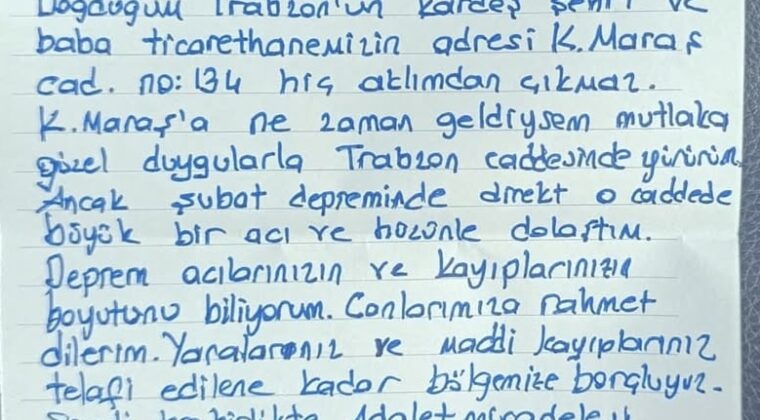 Doğduğum Trabzon'un kardeş şehri ve
baba ticarethanemizin adresi K.Maraş
cad. no: 134 hiç aklımdan çıkmaz.
K.Maraş'a ne zaman geldiysem mutlaka
güzel duygularla Trabzon caddesinde yürürüm.
Ancak şubat depreminde direkt o caddede
büyük bir acı ve hüzünle dolaştım.
Deprem acılarınızın ve kayıplarınızın
boyutunu biliyorum. Canlarımıza rahmet
dilerim. Yaralarınız ve maddi kayıplarınız
telafi edilene kadar bölgemize borçluyuz.
birlikte Adalet